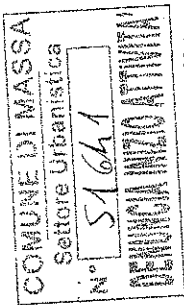 COMUNE DI MASSA
Settore Urbanistica
N° 51641